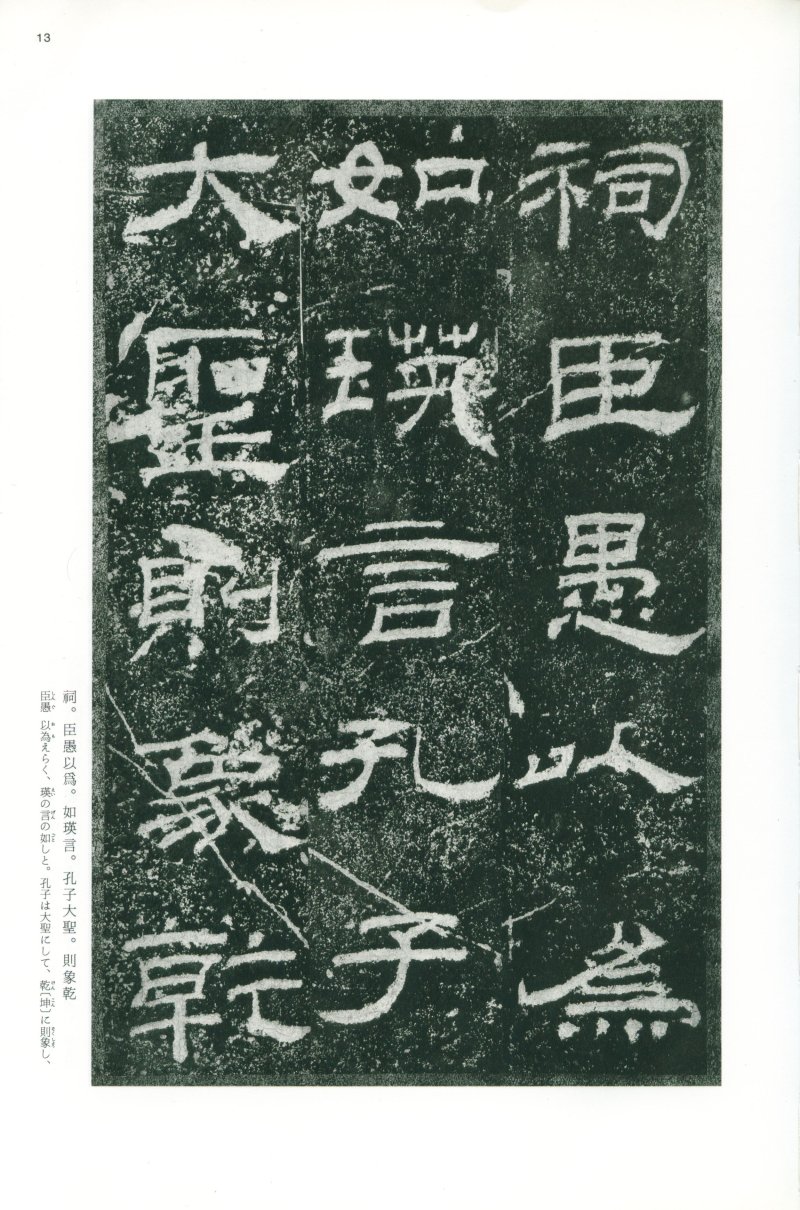 13
祠臣愚以為
如瑛言孔子
大聖則象乾
祠。臣愚以爲。如瑛言。孔子大聖。則象乾
臣愚以為えらく、瑛の言の如しと。孔子は大聖にして、乾〔坤〕に則象し、